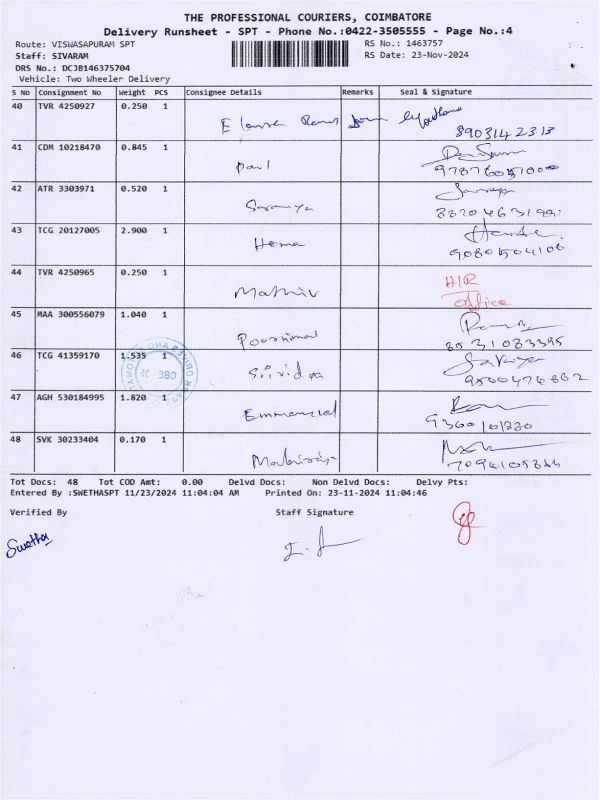 THE PROFESSIONAL COURIERS, COIMBATORE
Delivery Runsheet - SPT - Phone No.:0422-3505555 - Page No.:4
Route: VISWASAPURAM SPT RS No.: 1463757
Staff: SIVARAM RS Date: 23-Nov-2024
DRS No.: DCJB146375704
Vehicle: Two Wheeler Delivery
S No Consignment No Weight PCS Consignee Details Remarks Seal & Signature
40 TVR 4250927 0.250 1
8903142313
41 CDM 10218470 0.845 1
Paul
42 ATR 3303971 0.520 1
Saranya
43 TCG 20127005 2.900 1
Hema 9080504106
44 TVR 4250965 0.250 1
H/R
Office
45 MAA 300556079 1.040 1
Poornima
46 TCG 41359170 1.535 1
Srividya
47 AGH 530184995 1.820 1
Emmanuel
48 SVK 30233404 0.170 1
Tot Docs: 48 Tot COD Amt: 0.00 Delvd Docs: Non Delvd Docs: Delvy Pts:
Entered By :SWETHASPT 11/23/2024 11:04:04 AM Printed On: 23-11-2024 11:04:46
Verified By Staff Signature
Swetha